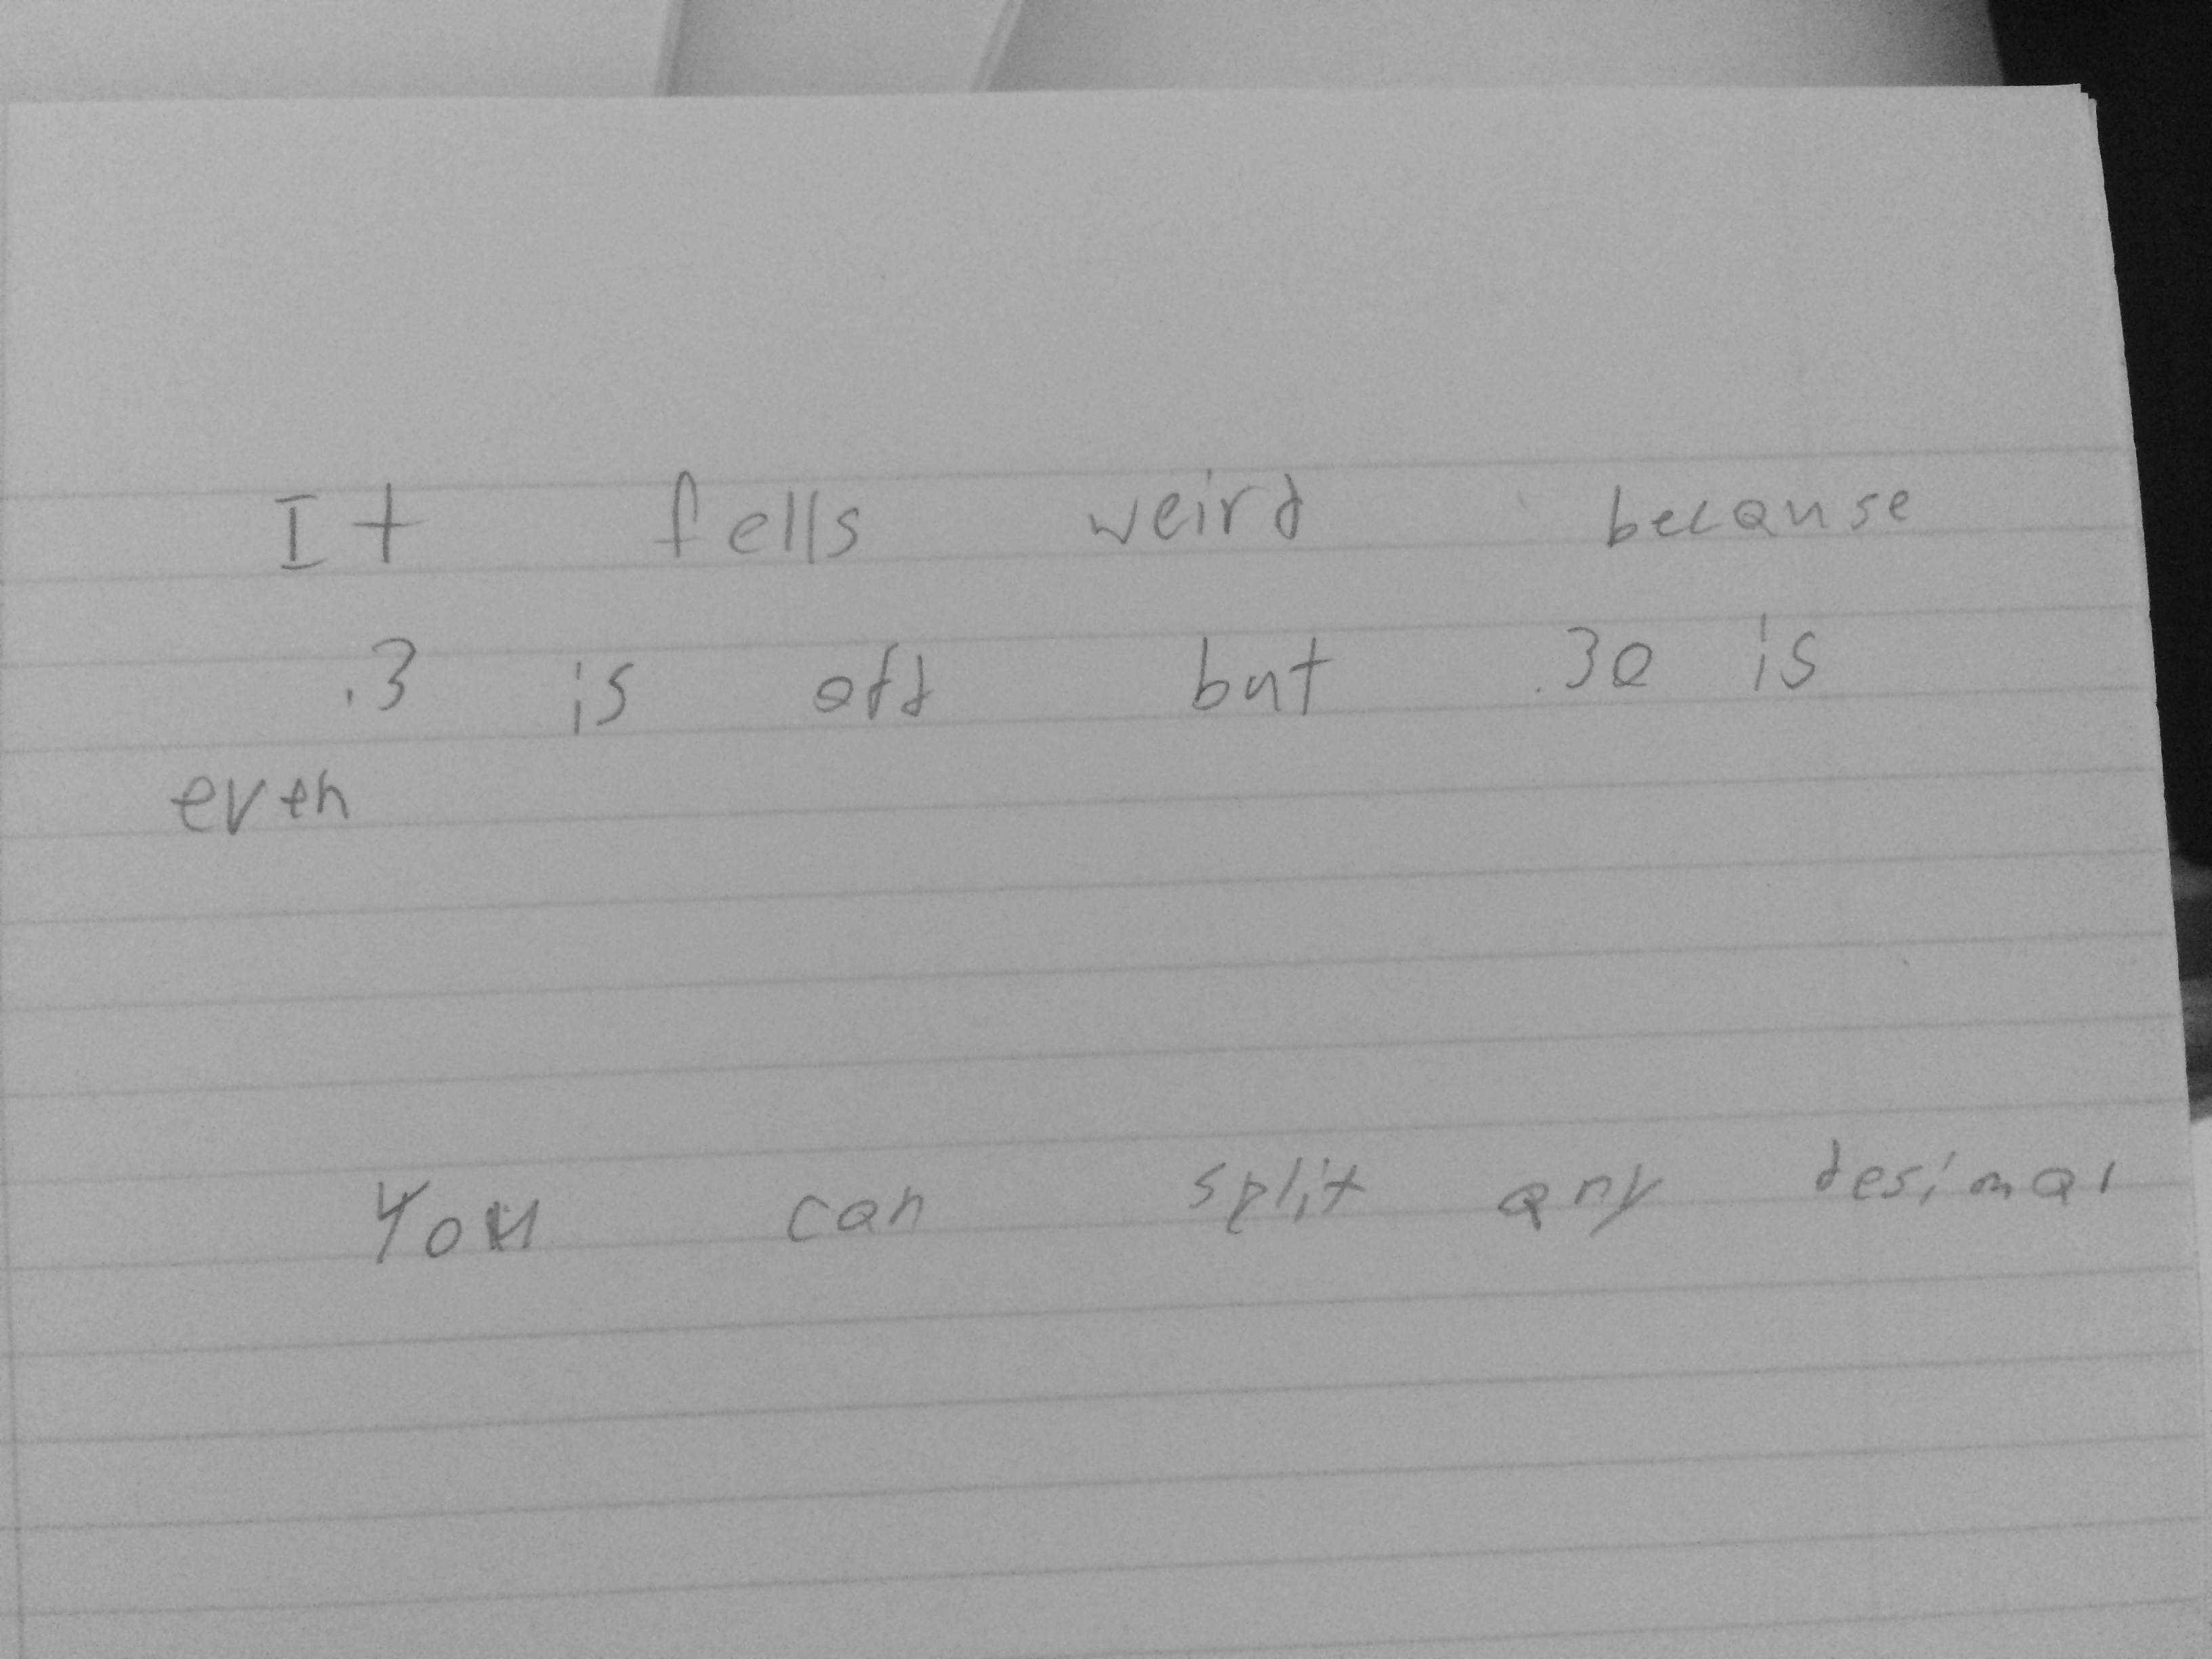 It fells weird because
.3 is odd but .30 is
even
You can split any desimal